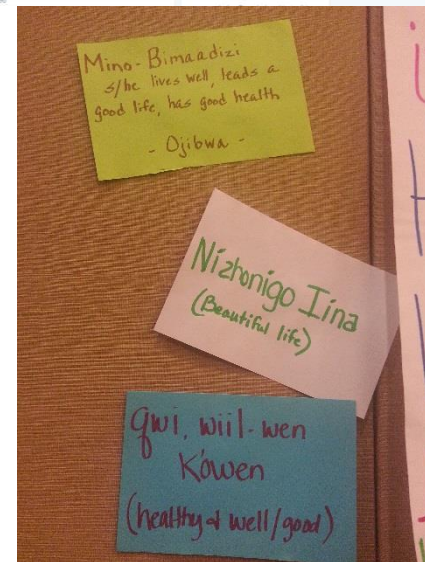 Mino-Bimaadizi
s/he lives well, leads a
good life, has good health
- Ojibwa -
Nizhonigo Iina
(Beautiful life)
qwi, wiil-wen
Kówen
(healthy & well/good)